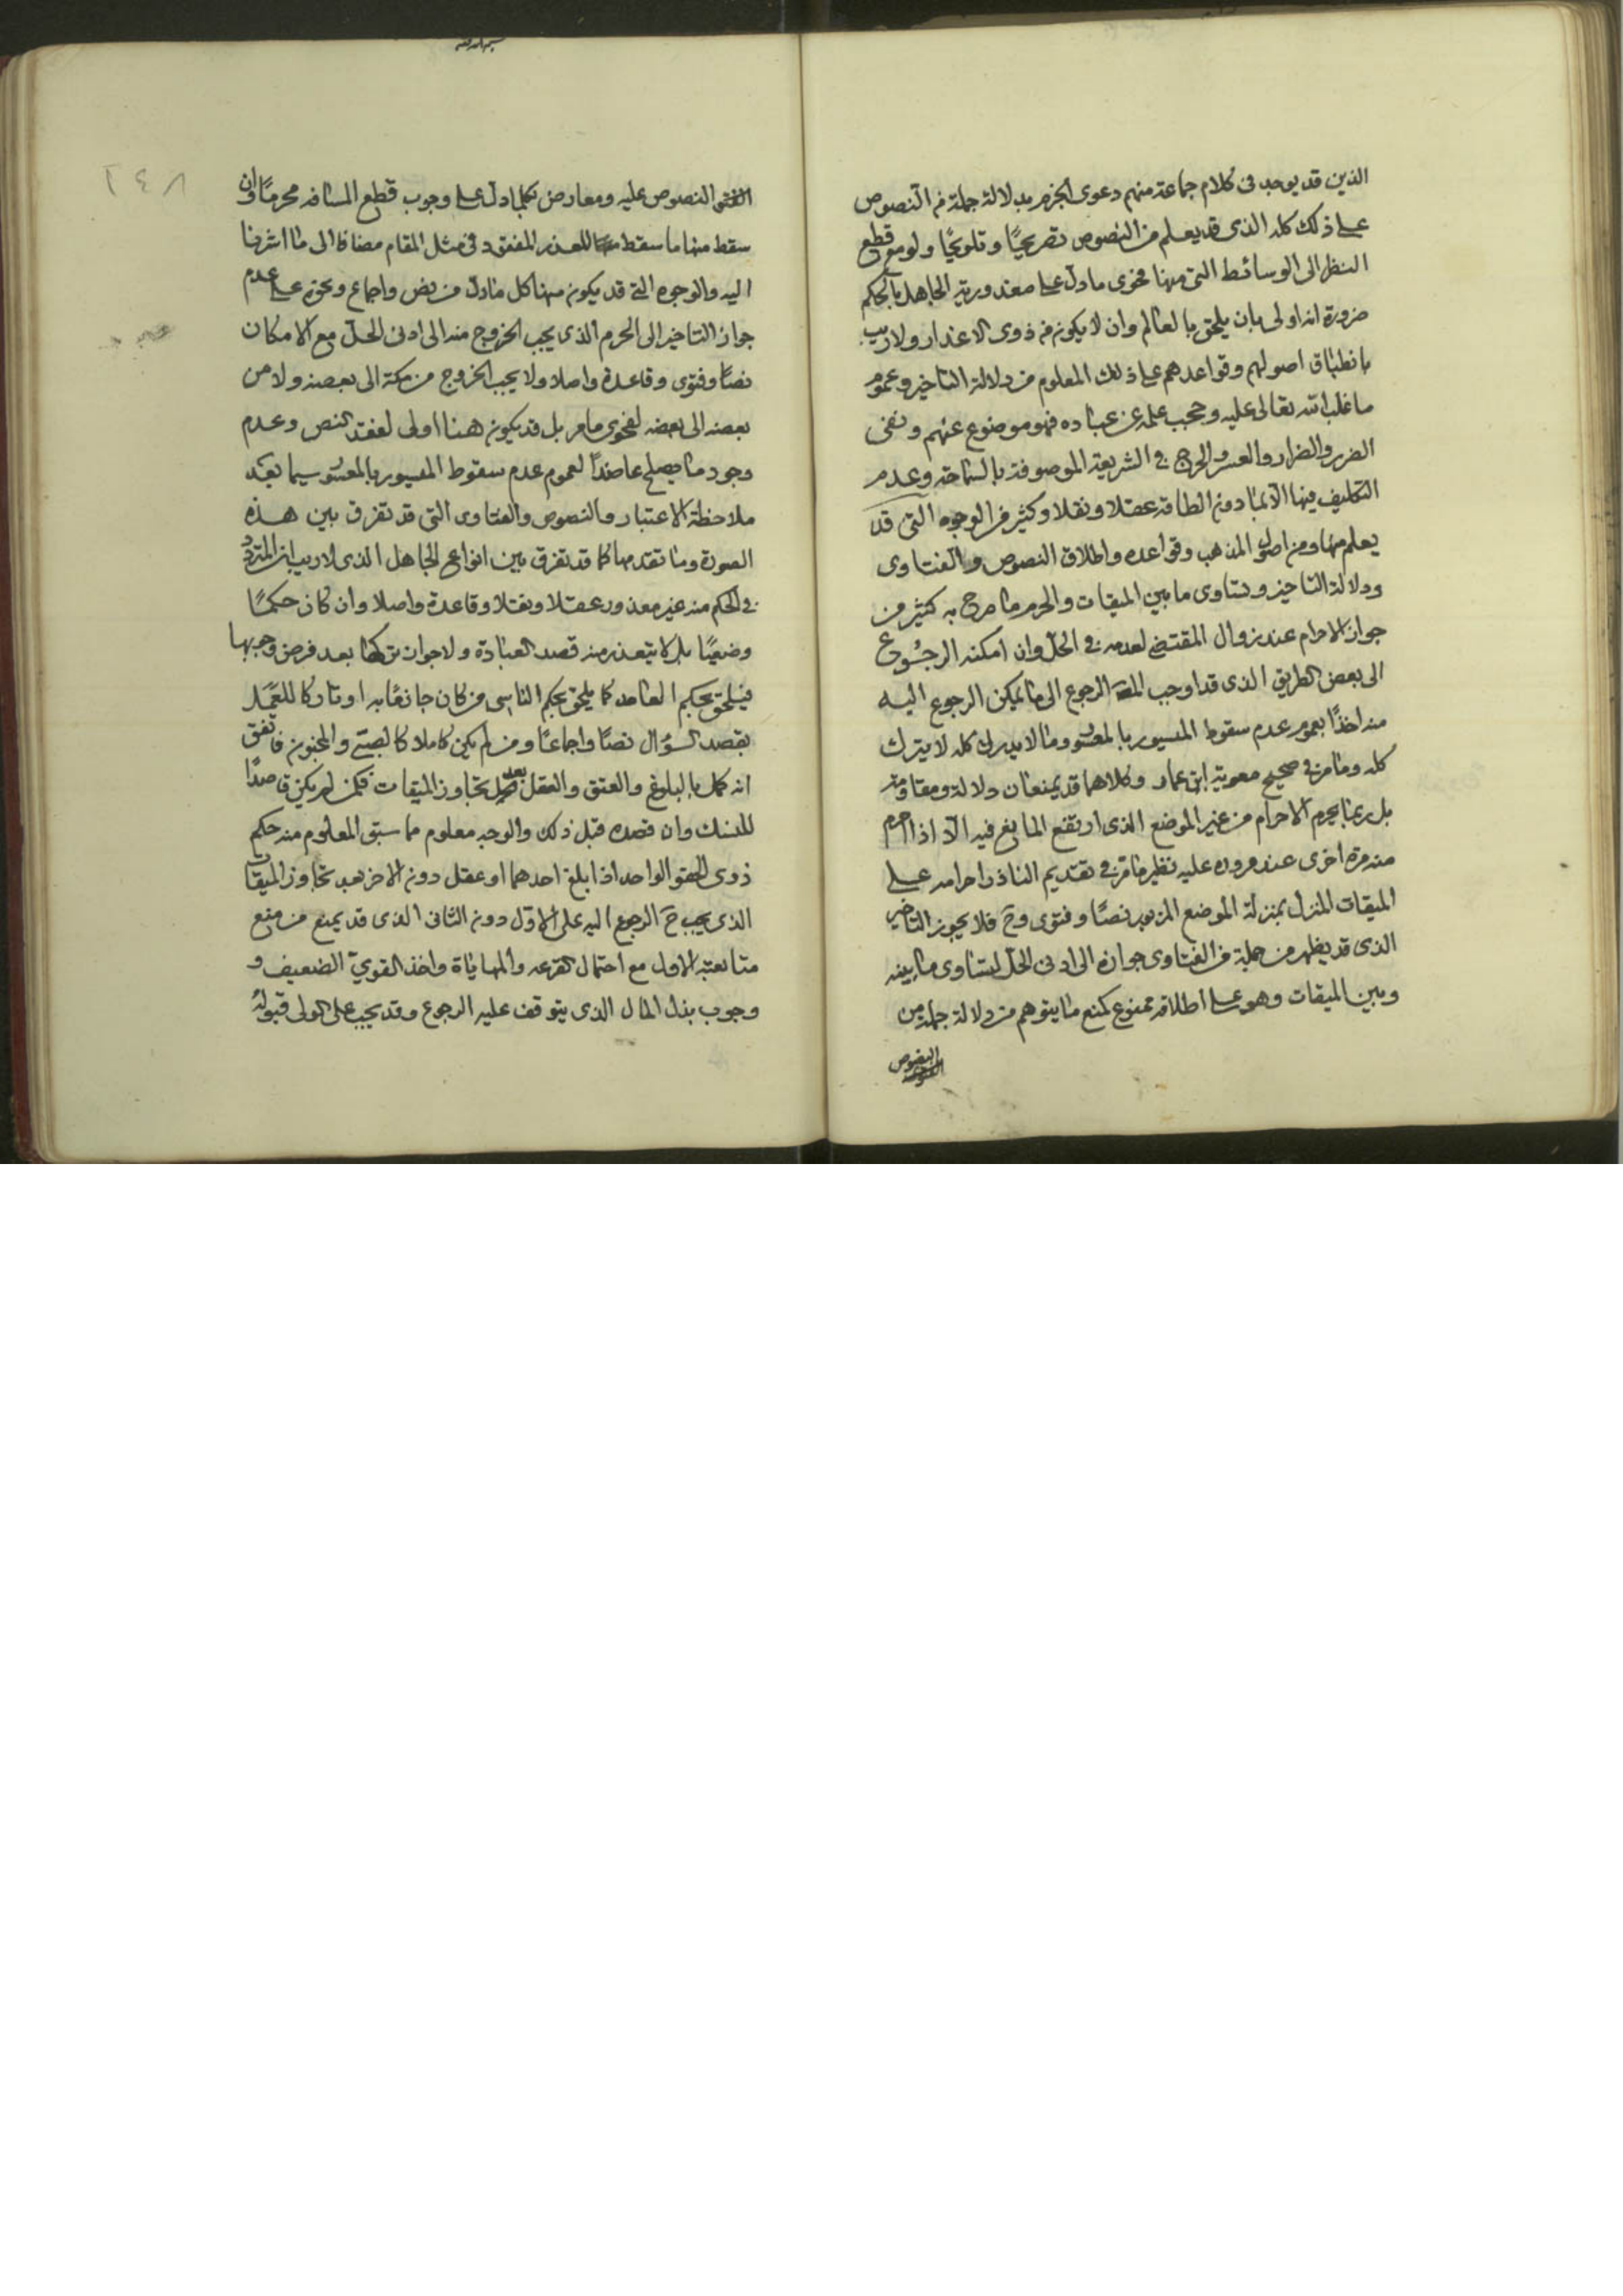 الذين قد يوجد في كلام جماعة منهم دعوى الجزم بدلالة جملة من النصوص
على ذلك كله الذي قد يعلم من النصوص تصريحًا وتلويحًا ولو مع قطع
النظر الى الوسائط التي منها فحوى ما دل على معذورية الجاهل بالحكم
ضرورة انه اولى بان يلحق بالعالم وان لا يكون من ذوى الاعذار ولا ريب
بانطباق اصولهم وقواعدهم على ذلك المعلوم من دلالة التاخير وعموم
ما غلب الله تعالى عليه وحجب علمه عن عباده فهو موضوع عنهم ونفى
الضرر والضرار والعسر والحرج في الشريعة الموصوفة بالسماحة وعدم
التكليف فيها الا بما دون الطاقة عقلا ونقلا وكثير من الوجوه التي قد
يعلم منها ومن اصول المذهب وقواعده واطلاق النصوص والفتاوى
ودلالة التاخير وتساوى ما بين الميقات والحرم ما صرح به كثير من
جواز الاحرام عند زوال المقتضي لعدمه في الحل وان امكنه الرجوع
الى بعض الطريق الذي قد اوجب الرجوع الى ما يمكن الرجوع اليه
منه اخذًا بعموم عدم سقوط الميسور بالمعسور وما لا يدرك كله لا يترك
كله وما مر في صحيح معوية ابن عمار وكلاهما قد يمنعان دلالة ومقاومة
بل ربما يحرم الاحرام من غير الموضع الذي ارتفع المانع فيه الا اذا احرم
منه مرة اخرى عند مروره عليه نظير ما مر في تقديم الناذر احرامه على
الميقات المنزل بمنزلة الموضع المزبور نصًا وفتوى وح فلا يجوز التاخير
الذي قد يظهر من جملة من الفتاوى جوازه الى ادنى الحل لتساوى ما بينه
وبين الميقات وهو على اطلاقه ممنوع كمنع ما يتوهم من دلالة جملة من
النصوص
٢٤٨
النصوص عليه ومعارض بكلما دل على وجوب قطع المسافه محرمًا وان
سقط منها ما سقط للعذر المفقود في مثل المقام مضافا الى ما اشرنا
اليه والوجوه التي قد يكون منها كل ما دل من نص واجماع ونحوه على عدم
جواز التاخير الى الحرم الذي يجب الخروج منه الى ادنى الحل مع الامكان
نصًا وفتوى وقاعدة واصلا ولا يجب الخروج من مكة الى بعضه ولا من
بعضه الى بعضه لفحوى ما مر بل قد يكون هنا اولى لفقد النص وعدم
وجود ما يصلح عاضدًا لعموم عدم سقوط الميسور بالمعسور سيما بعد
ملاحظة الاعتبار والنصوص والفتاوى التي قد تفرق بين هذه
الصورة وما تقدمها كما قد تفرق بين انواع الجاهل الذي لا ريب ان المتردد
في الحكم منه غير معذور عقلا ونقلا وقاعدة واصلا وان كان حكمًا
وضعيًا بل لا يتعذر منه قصد العبادة ولا جواز تركها بعد فرض وجوبها
فيلحق بحكم العامد كما يلحق بحكم الناسي من كان جازمًا به او تاركا للعمل
بقصد السؤال نصًا واجماعًا ومن لم يكن كاملا كالصبي والمجنون فاتفق
انه كمل بالبلوغ والعتق والعقل بعد تجاوز الميقات فكمن لم يكن قاصدًا
للنسك وان قصده قبل ذلك والوجه معلوم مما سبق المعلوم منه حكم
ذوى الحقو الواحد اذا بلغ احدهما او عقل دون الاخر بعد تجاوز الميقات
الذي يجب ح الرجوع اليه على الاول دون الثاني الذي قد يمنع من منع
متابعته الاول مع احتمال القرعه والمهاياة واخذ القوي الضعيف و
وجوب بذل المال الذي يتوقف عليه الرجوع وقد يجب على الولى قبوله